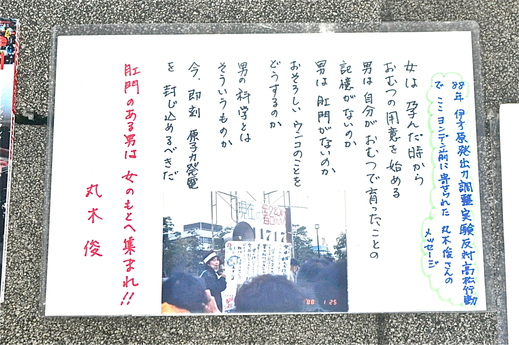 88年 伊方原発出力調整実験反対高松行動
で ここ ヨンデン前に寄せられた 丸木俊さんの
メッセージ
女は 孕んだ時から
おむつの用意を始める
男は自分が おむつで育ったことの
記憶がないのか
男は 肛門がないのか
おそろしい ウンコのことを
どうするのか
男の科学とは
そういうものか
今、即刻 原子力発電
を 封じ込めるべきだ
肛門のある男は 女のもとへ集まれ!!
丸木俊
'88 1 25